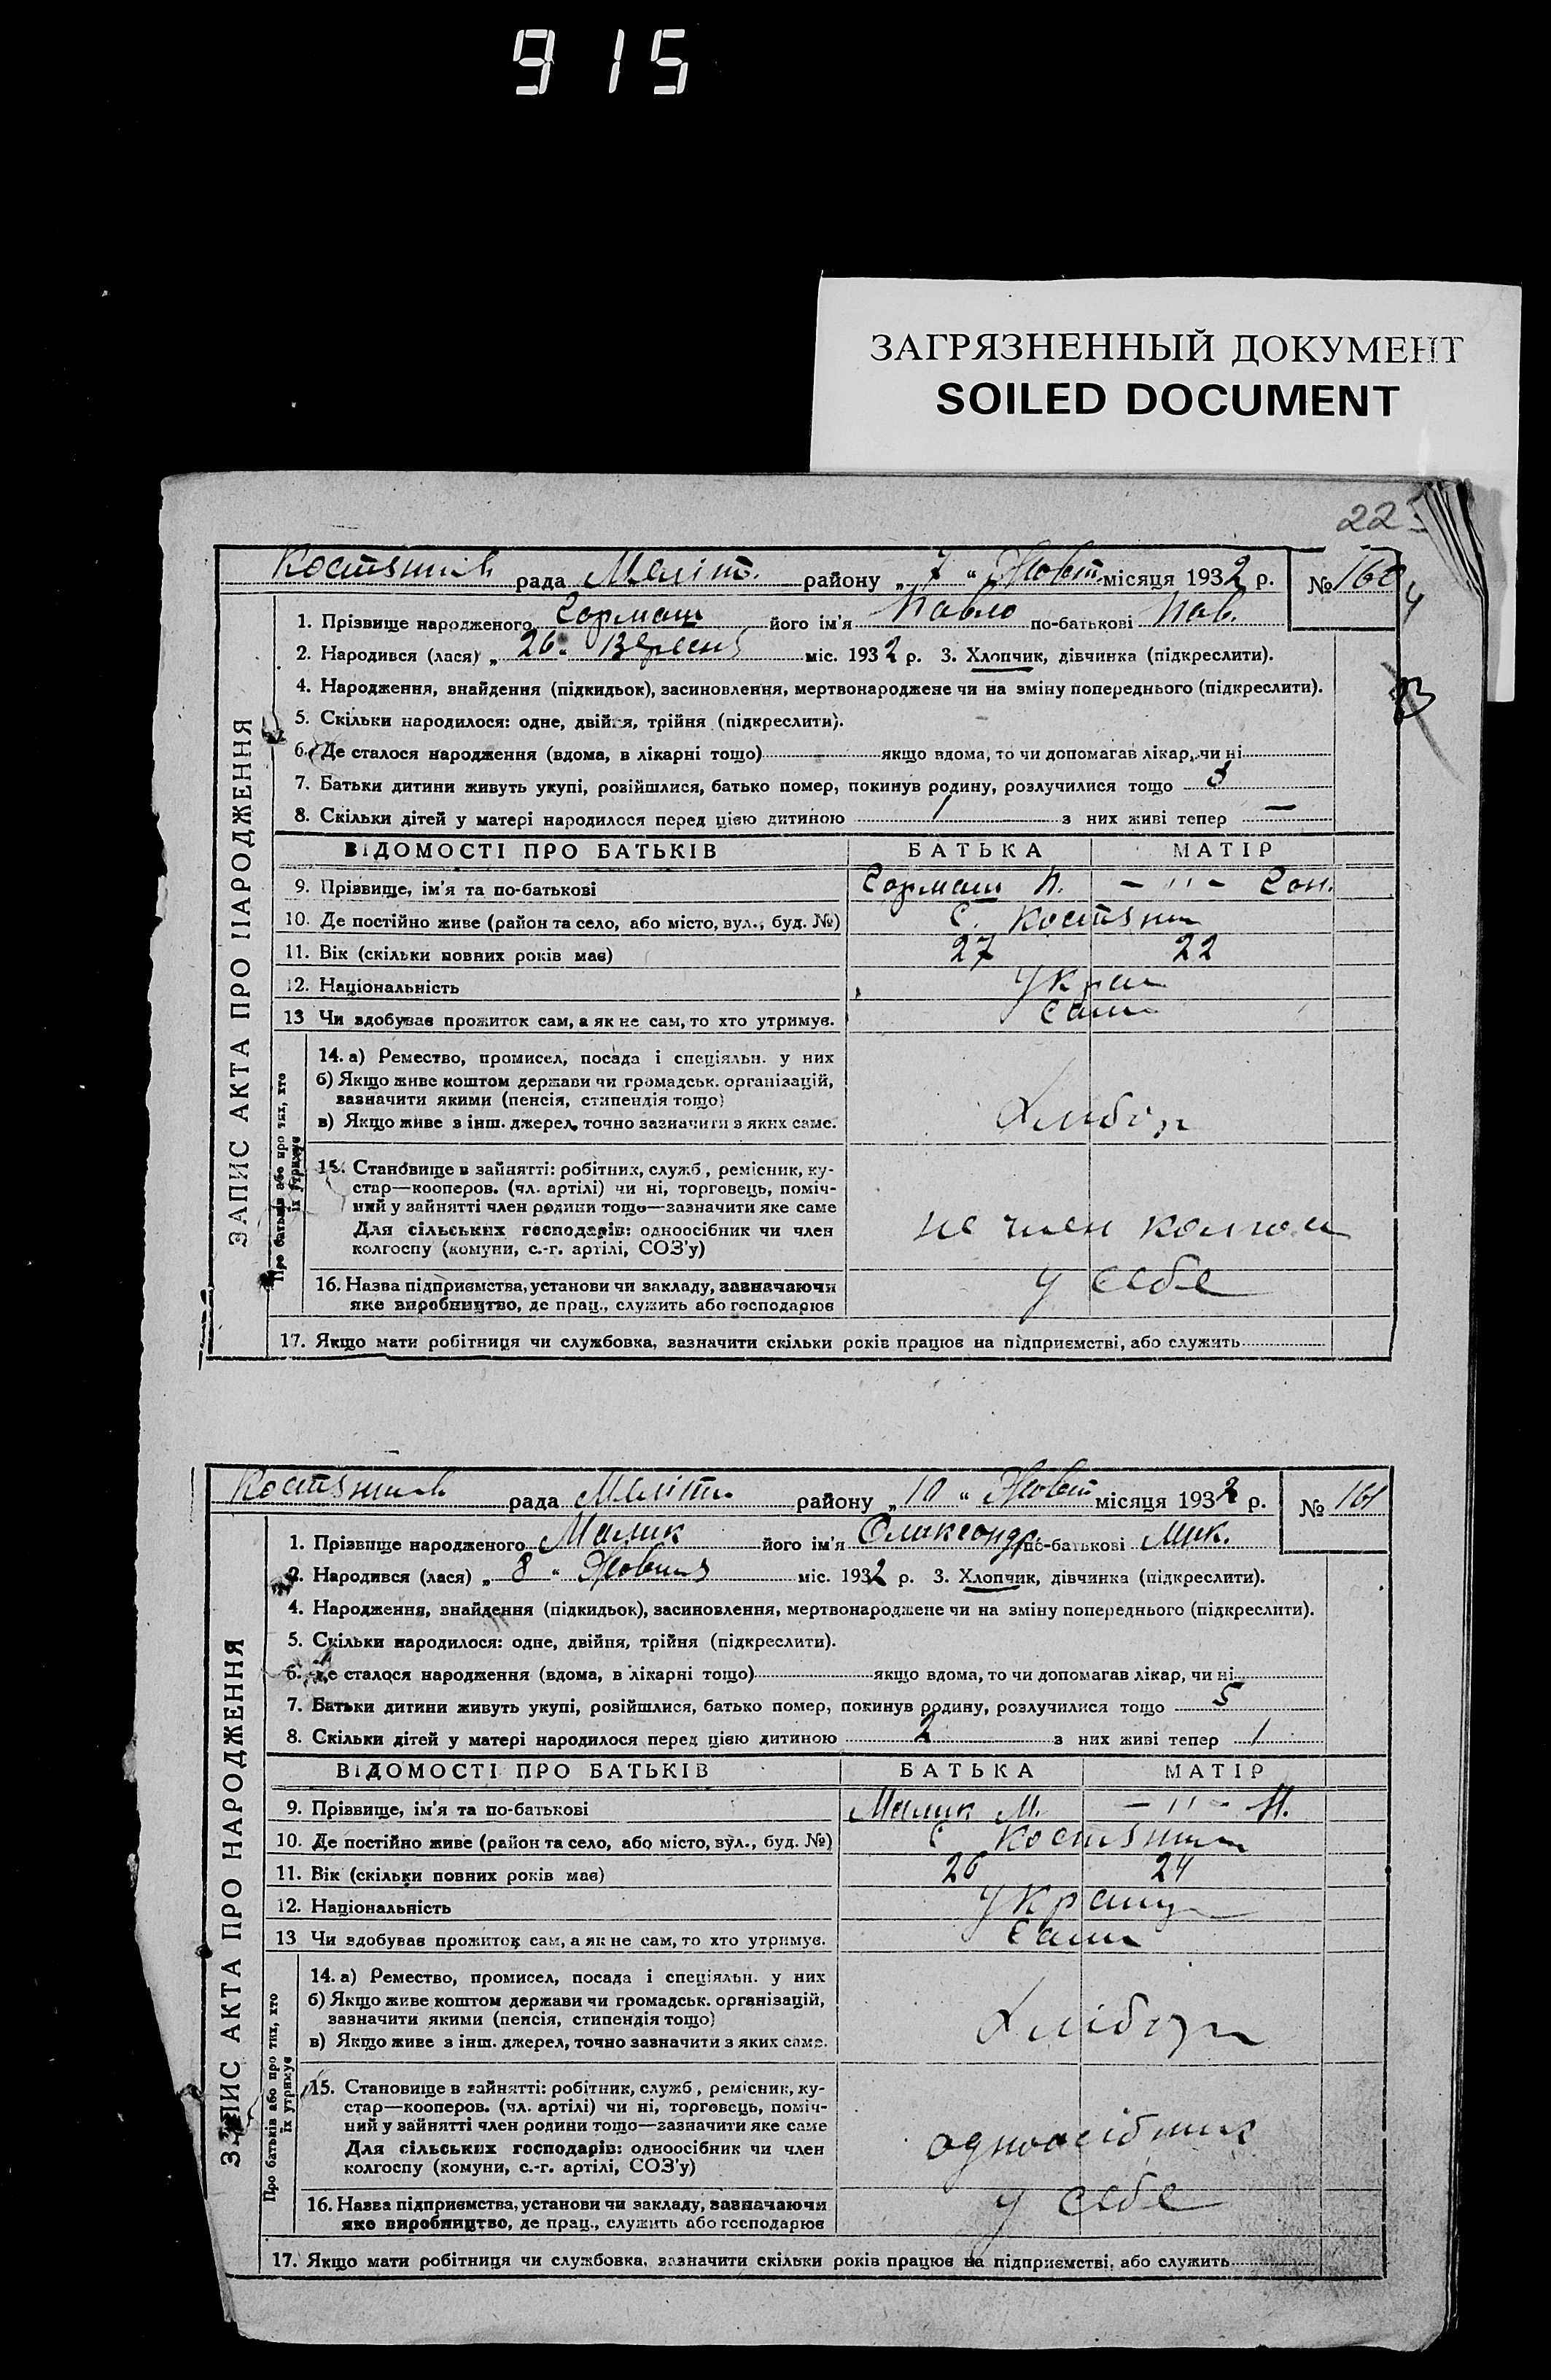 915
ЗАГРЯЗНЕННЫЙ ДОКУМЕНТ
SOILED DOCUMENT
22
рада Меліт. району „ 7 “ Жовт. місяця 1932 р. № 160
1. Прізвище народженого його ім'я Павло по-батькові Пав.
2. Народився (лася) „ 26 “ Вересня міс. 1932 р. 3. Хлопчик, дівчинка (підкреслити).
4. Народження, знайдення (підкидьок), засиновлення, мертвонароджене чи на зміну попереднього (підкреслити).
5. Скільки народилося: одне, двійня, трійня (підкреслити).
6. Де сталося народження (вдома, в лікарні тощо) якщо вдома, то чи допомагав лікар, чи ні
7. Батьки дитини живуть укупі, розійшлися, батько помер, покинув родину, розлучилися тощо
8. Скільки дітей у матері народилося перед цією дитиною 1 з них живі тепер —
ЗАПИС АКТА ПРО НАРОДЖЕННЯ
ВІДОМОСТІ ПРО БАТЬКІВ БАТЬКА МАТІР
9. Прізвище, ім'я та по-батькові П. – " –
10. Де постійно живе (район та село, або місто, вул., буд. №) с.
11. Вік (скільки повних років має) 27 22
12. Національність Укра
13 Чи здобуває прожиток сам, а як не сам, то хто утримує. Сами
Про батьків або про тих, хто їх утримує
14. а) Ремество, промисел, посада і спеціяльн. у них
б) Якщо живе коштом держави чи громадськ. організацій,
зазначити якими (пенсія, стипендія тощо)
в) Якщо живе з інш. джерел, точно зазначити з яких саме.
15. Становище в зайнятті: робітник, служб, ремісник, ку-
стар—кооперов. (чл. артілі) чи ні, торговець, поміч-
ний у зайнятті член родини тощо—зазначити яке саме
Для сільських господарів: одноосібник чи член
колгоспу (комуни, с.-г. артілі, СОЗ'у)
не член
16. Назва підприємства, установи чи закладу, зазначаючи
яке виробництво, де прац., служить або господарює
у себе
17. Якщо мати робітниця чи службовка, зазначити скільки років працює на підприємстві, або служить
рада Меліт. району „ 10 “ Жовт місяця 1932 р. № 161
1. Прізвище народженого Малик його ім'я Олександр по-батькові Мик.
2. Народився (лася) „ 8 “ Жовтня міс. 1932 р. 3. Хлопчик, дівчинка (підкреслити).
4. Народження, знайдення (підкидьок), засиновлення, мертвонароджене чи на зміну попереднього (підкреслити).
5. Скільки народилося: одне, двійня, трійня (підкреслити).
6. Де сталося народження (вдома, в лікарні тощо) якщо вдома, то чи допомагав лікар, чи ні
7. Батьки дитини живуть укупі, розійшлися, батько помер, покинув родину, розлучилися тощо 5
8. Скільки дітей у матері народилося перед цією дитиною 2 з них живі тепер 1
ЗАПИС АКТА ПРО НАРОДЖЕННЯ
ВІДОМОСТІ ПРО БАТЬКІВ БАТЬКА МАТІР
9. Прізвище, ім'я та по-батькові Малик М. – " –
10. Де постійно живе (район та село, або місто, вул., буд. №) с
11. Вік (скільки повних років має) 26 24
12. Національність Україн
13 Чи здобуває прожиток сам, а як не сам, то хто утримує. Сами
Про батьків або про тих, хто їх утримує
14. а) Ремество, промисел, посада і спеціяльн. у них
б) Якщо живе коштом держави чи громадськ. організацій,
зазначити якими (пенсія, стипендія тощо)
в) Якщо живе з інш. джерел, точно зазначити з яких саме.
Хлібор
15. Становище в зайнятті: робітник, служб, ремісник, ку-
стар—кооперов. (чл. артілі) чи ні, торговець, поміч-
ний у зайнятті член родини тощо—зазначити яке саме
Для сільських господарів: одноосібник чи член
колгоспу (комуни, с.-г. артілі, СОЗ'у)
одноосібник
16. Назва підприємства, установи чи закладу, зазначаючи
яке виробництво, де прац., служить або господарює
у себе
17. Якщо мати робітниця чи службовка, зазначити скільки років працює на підприємстві, або служить